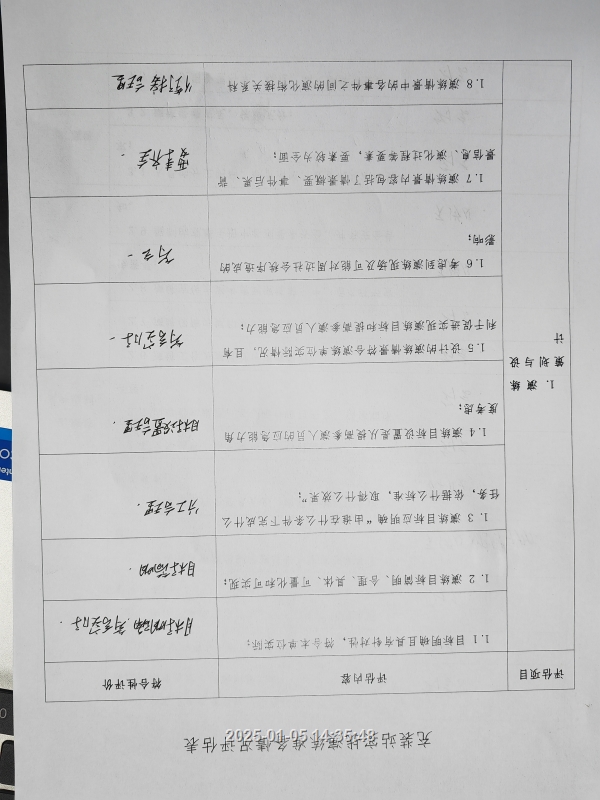 充装站实战演练准备情况评估表
2025-01-05 14:35:48
评估项目
评估内容
符合性评价
1. 演练
策划与设
计
1.1 目标明确且具有针对性，符合本单位实际；
目标明确, 符合实际.
1.2 演练目标简明、合理、具体、可量化和可实现；
目标简明.
1.3 演练目标应明确“由谁在什么条件下完成什么
任务，依据什么标准，取得什么效果”；
分工合理.
1.4 演练目标设置是从提高参演人员的应急能力角
度考虑；
目标设置合理.
1.5 设计的演练情景符合演练单位实际情况，且有
利于促进实现演练目标和提高参演人员应急能力；
符合实际.
1.6 考虑到演练现场及可能对周边社会秩序造成的
影响；
1.7 演练情景内容包括了情景概要、事件后果、背
景信息、演化过程等要素，要素较为全面；
要素齐全.
1.8 演练情景中的各事件之间的演化衔接关系科
衔接合理